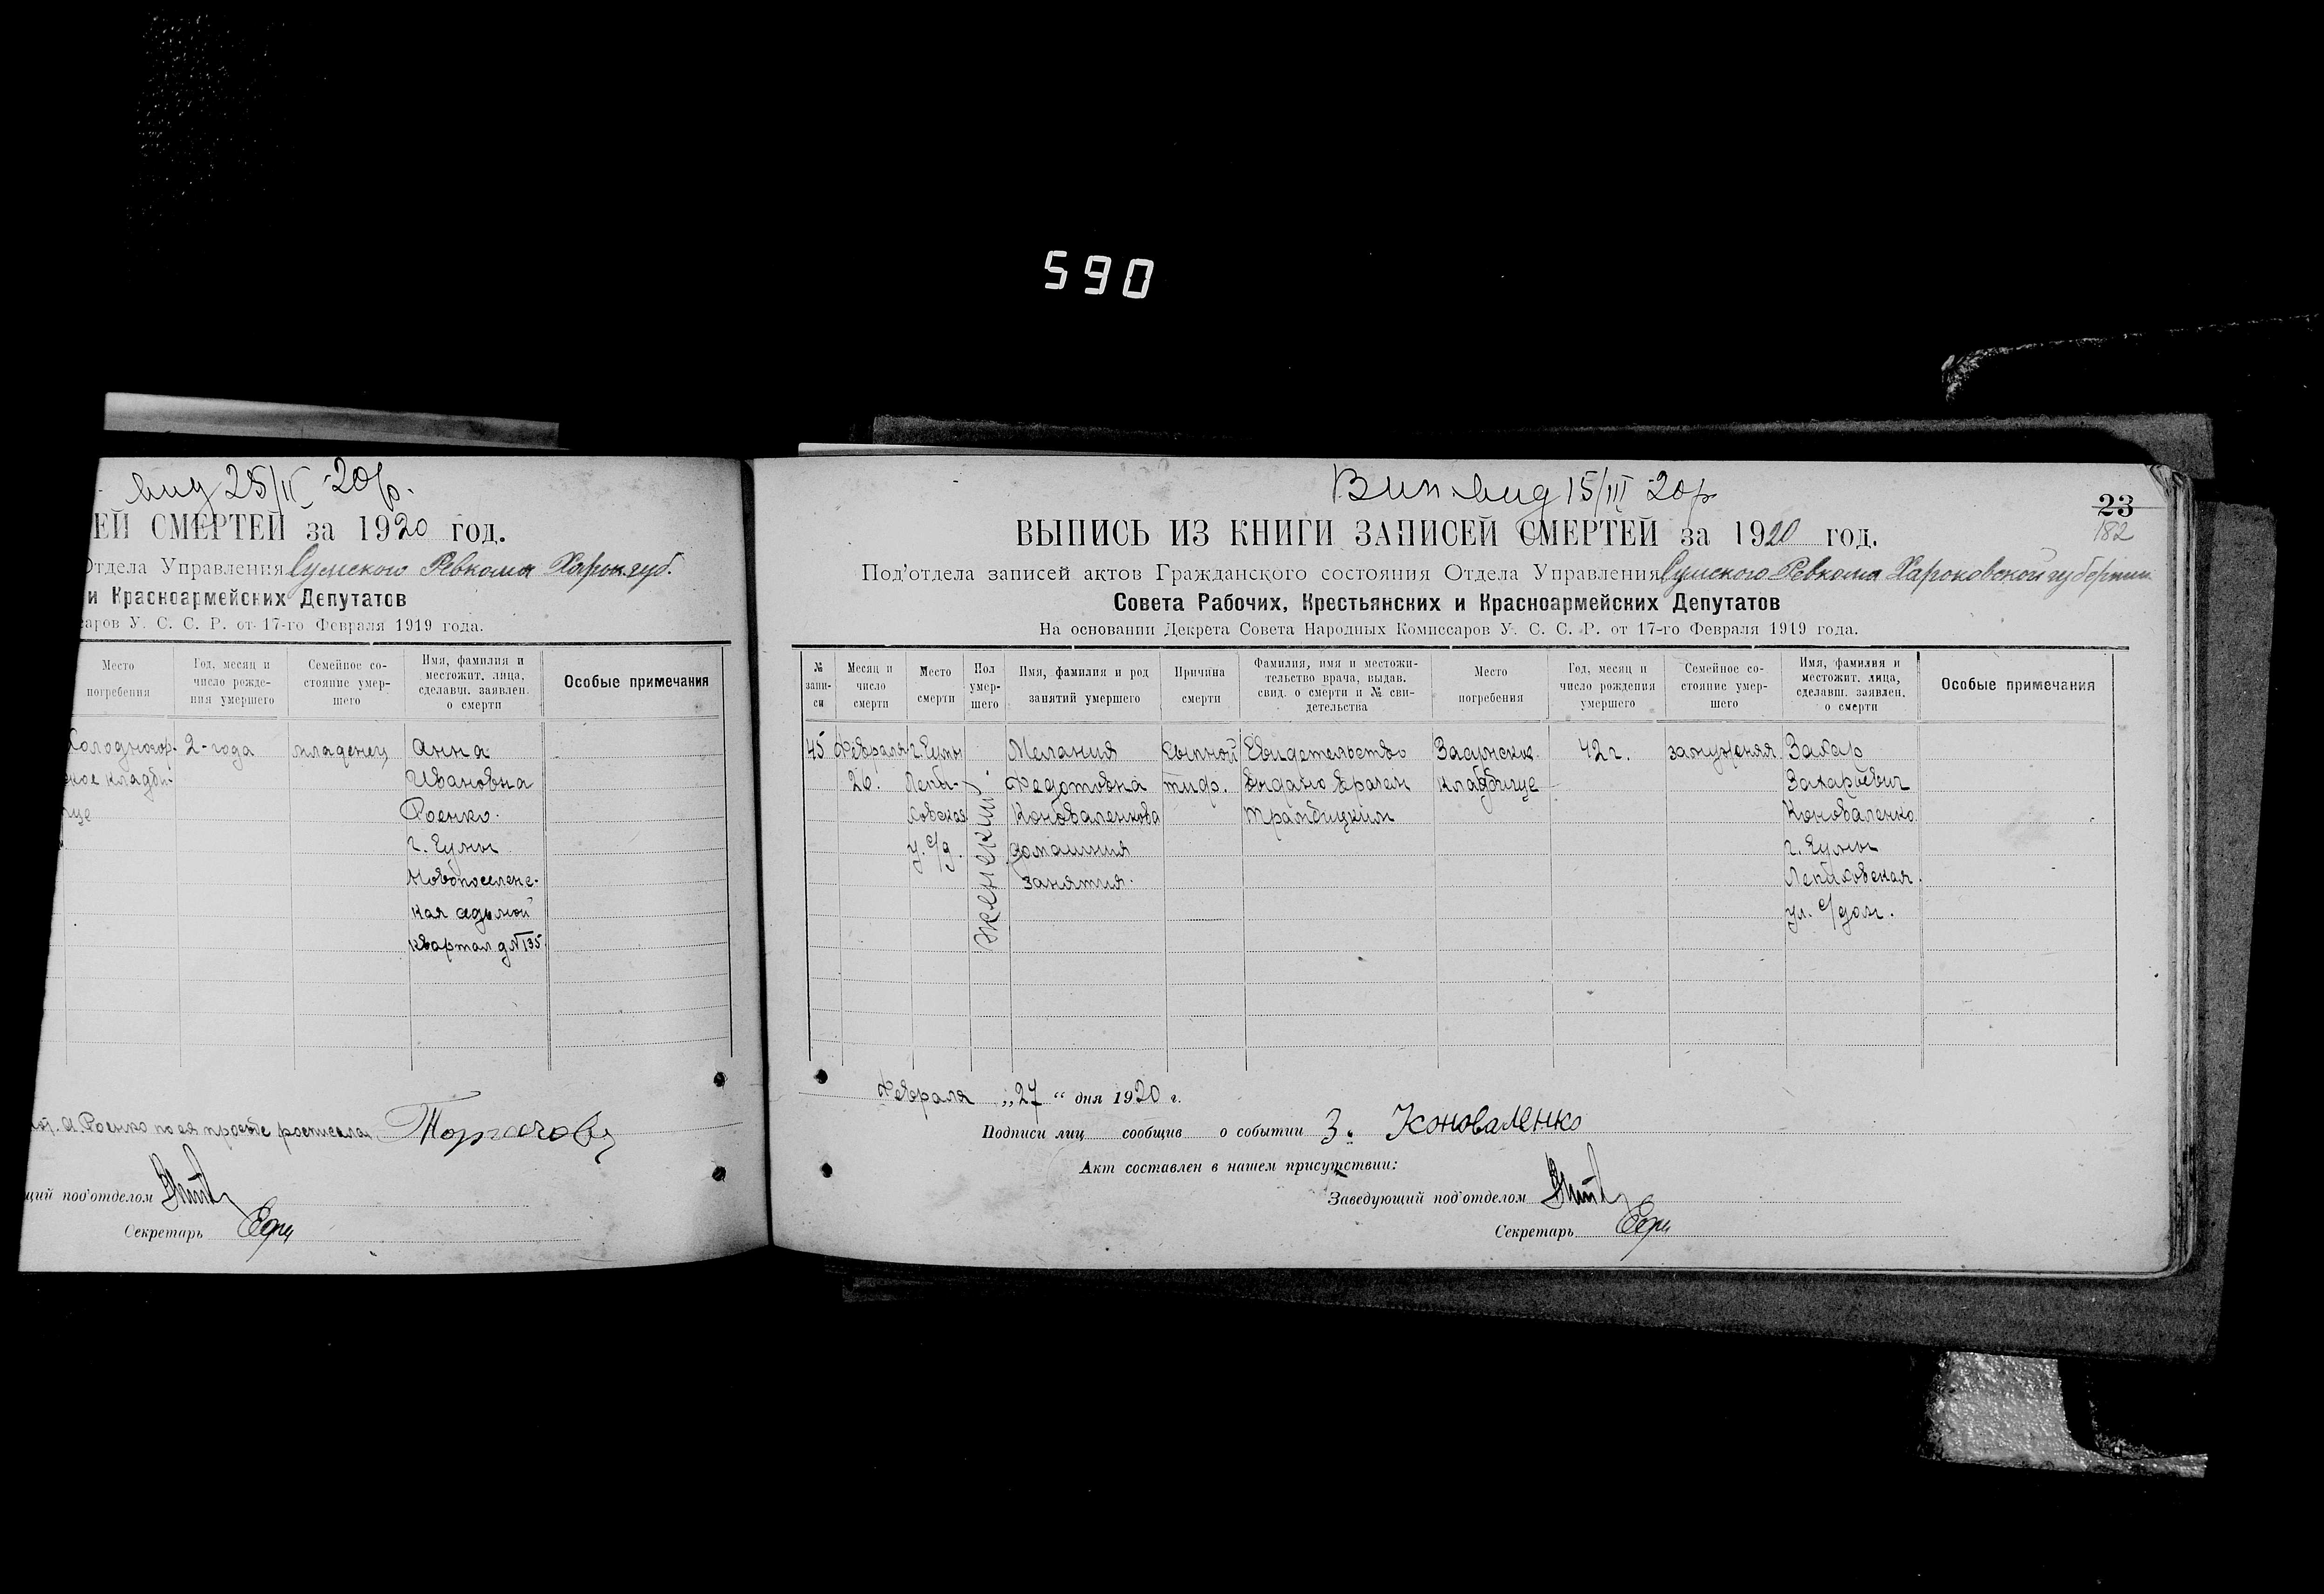 590
вид 25/II -20 р.
ЕЙ СМЕРТЕЙ за 1920 год.
Отдела Управления Сумского Ревкома Харьк. губ.
и Красноармейских Депутатов
саров У. С. С. Р. от 17-го Февраля 1919 года.
Место погребения
Год, месяц и число рожде- ния умершего
Семейное со- стояние умер- шего
Имя, фамилия и местожит. лица, сделавш. заявлен. о смерти
Особые примечания
Холодногор- 2-года младенец Анна
ское кладби- Ивановна
ще Роенко.
г. Сумы
Новопоселенс-
кая седьмой
квартал д № 135
А. Роенко по ея просьбе
щий под'отделом
Секретарь
Вип. вид 15/III -20 р
23
182
ВЫПИСЬ ИЗ КНИГИ ЗАПИСЕЙ СМЕРТЕЙ за 1920 год.
Под'отдела записей актов Гражданского состояния Отдела Управления Сумского Ревкома Харьковской губернии
Совета Рабочих, Крестьянских и Красноармейских Депутатов
На основании Декрета Совета Народных Комиссаров У. С. С. Р. от 17-го Февраля 1919 года.
№ запи- си
Месяц и число смерти
Место смерти
Пол умер- шего
Имя, фамилия и род занятий умершего
Причина смерти
Фамилия, имя и местожи- тельство врача, выдав. свид. о смерти и № сви- детельства
Место погребения
Год, месяц и число рождения умершего
Семейное со- стояние умер- шего
Имя, фамилия и местожит. лица, сделавш. заявлен. о смерти
Особые примечания
45 Февраля г. Сумы Мелания Сыпной Свидетельство Засумск. 42 г. замужняя Захар
26. Федотовна тиф. выдано врачем кладбище Захарьевич
Коноваленкова Коноваленко
у. с/д. домашния г. Сумы
занятия.
ул. с/дом.
женский
Февраля „27“ дня 1920 г.
Подписи лиц сообщив о событии З. Коноваленко
Акт составлен в нашем присутствии:
Заведующий под'отделом
Секретарь